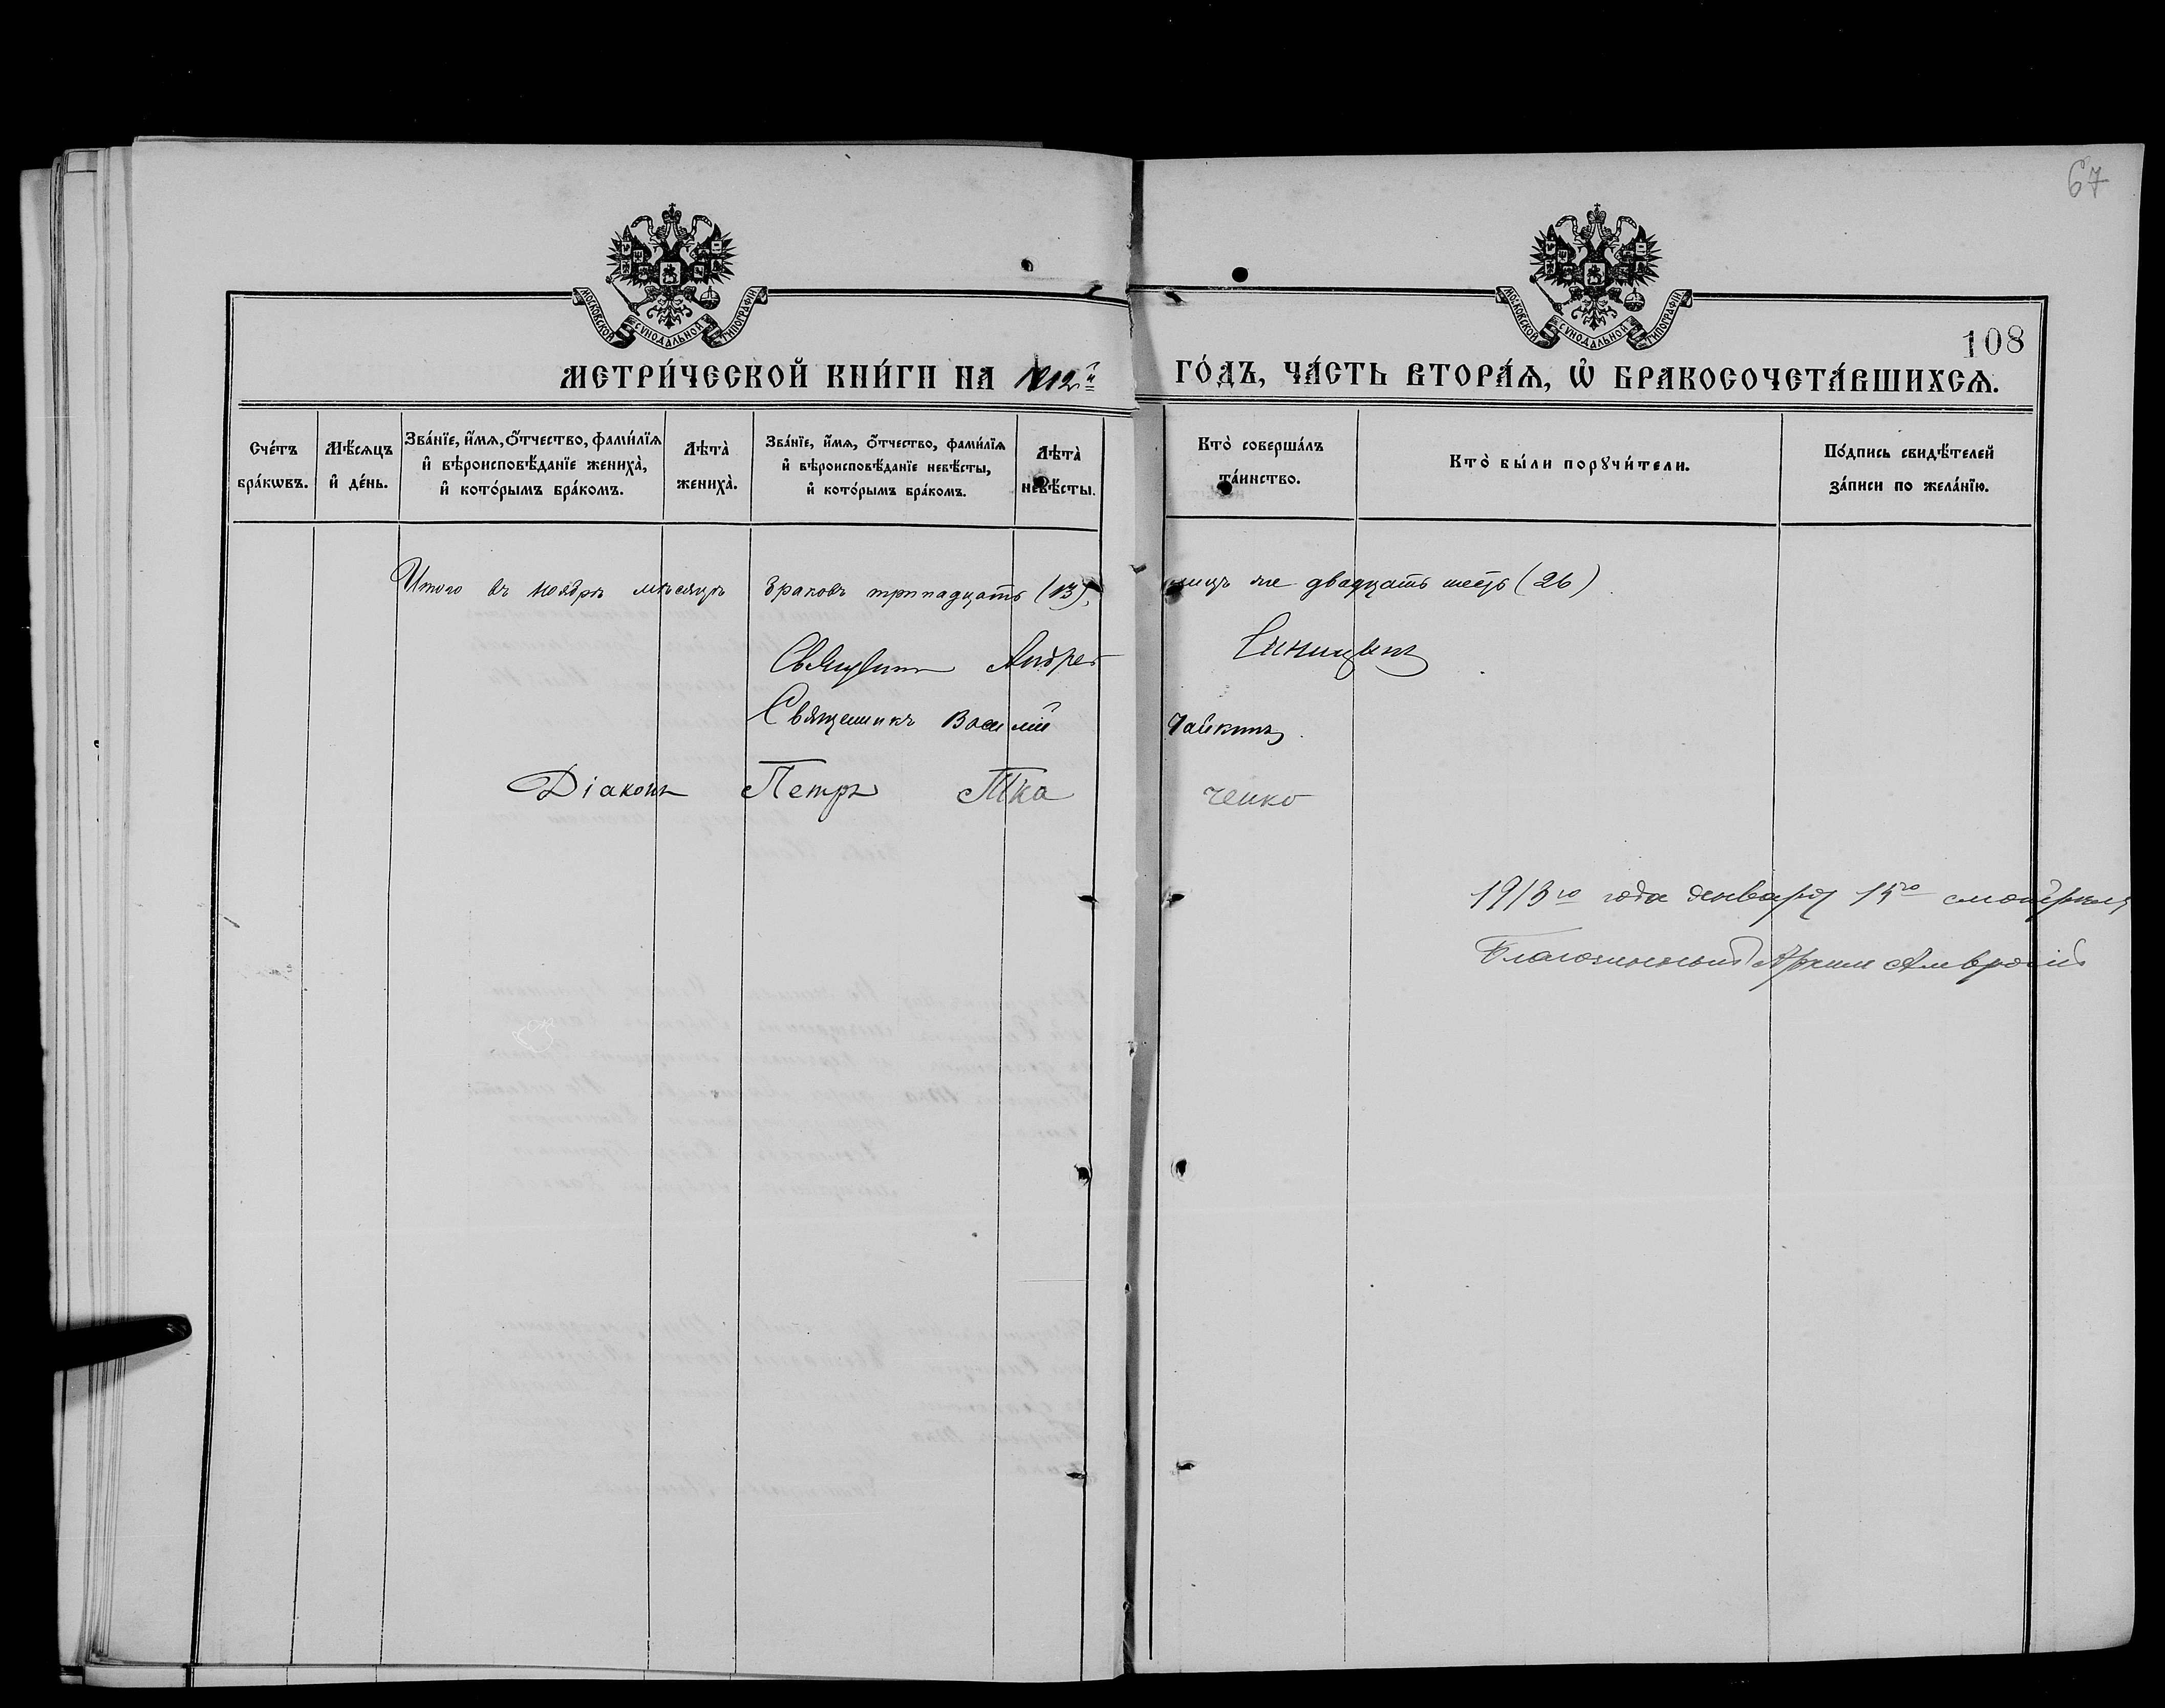 67
МОСКОВСКОЙ СѴНОДАЛЬНОЙ ТИПОГРАФІИ
МОСКОВСКОЙ СѴНОДАЛЬНОЙ ТИПОГРАФІИ
108
МЕТРИ́ЧЕСКОЙ КНИ́ГИ НА 1912й ГО́ДЪ, ЧА́СТЬ ВТОРА́Ѧ, Ѡ҆ БРАКОСОЧЕТА́ВШИХСѦ.
Сче́тъ бра́кѡвъ.
Мѣ́сѧцъ и҆ де́нь.
Зва́нїе, и҆́мѧ, ѻ҆́тчество, фами́лїѧ и҆ вѣроисповѣ́данїе жениха̀, и҆ кото́рымъ бра́комъ.
Лѣта̀ жениха̀.
Зва́нїе, и҆́мѧ, ѻ҆́тчество, фами́лїѧ и҆ вѣроисповѣ́данїе невѣ́сты, и҆ кото́рымъ бра́комъ.
Лѣта̀ невѣ́сты.
Кто̀ соверша́лъ та́инство.
Кто̀ бы́ли порꙋчи́тели.
По́дпись свидѣ́телей за́писи по жела́нїю.
Итого въ ноябрѣ мѣсяцѣ браковъ тринадцать (13), лицъ же двадцать шесть (26)
Священникъ Андрей Синицынъ
Священникъ Василій Чайкинъ.
Діаконъ Петръ Ткаченко
1913го года января 15го
Благочинный Амвросій